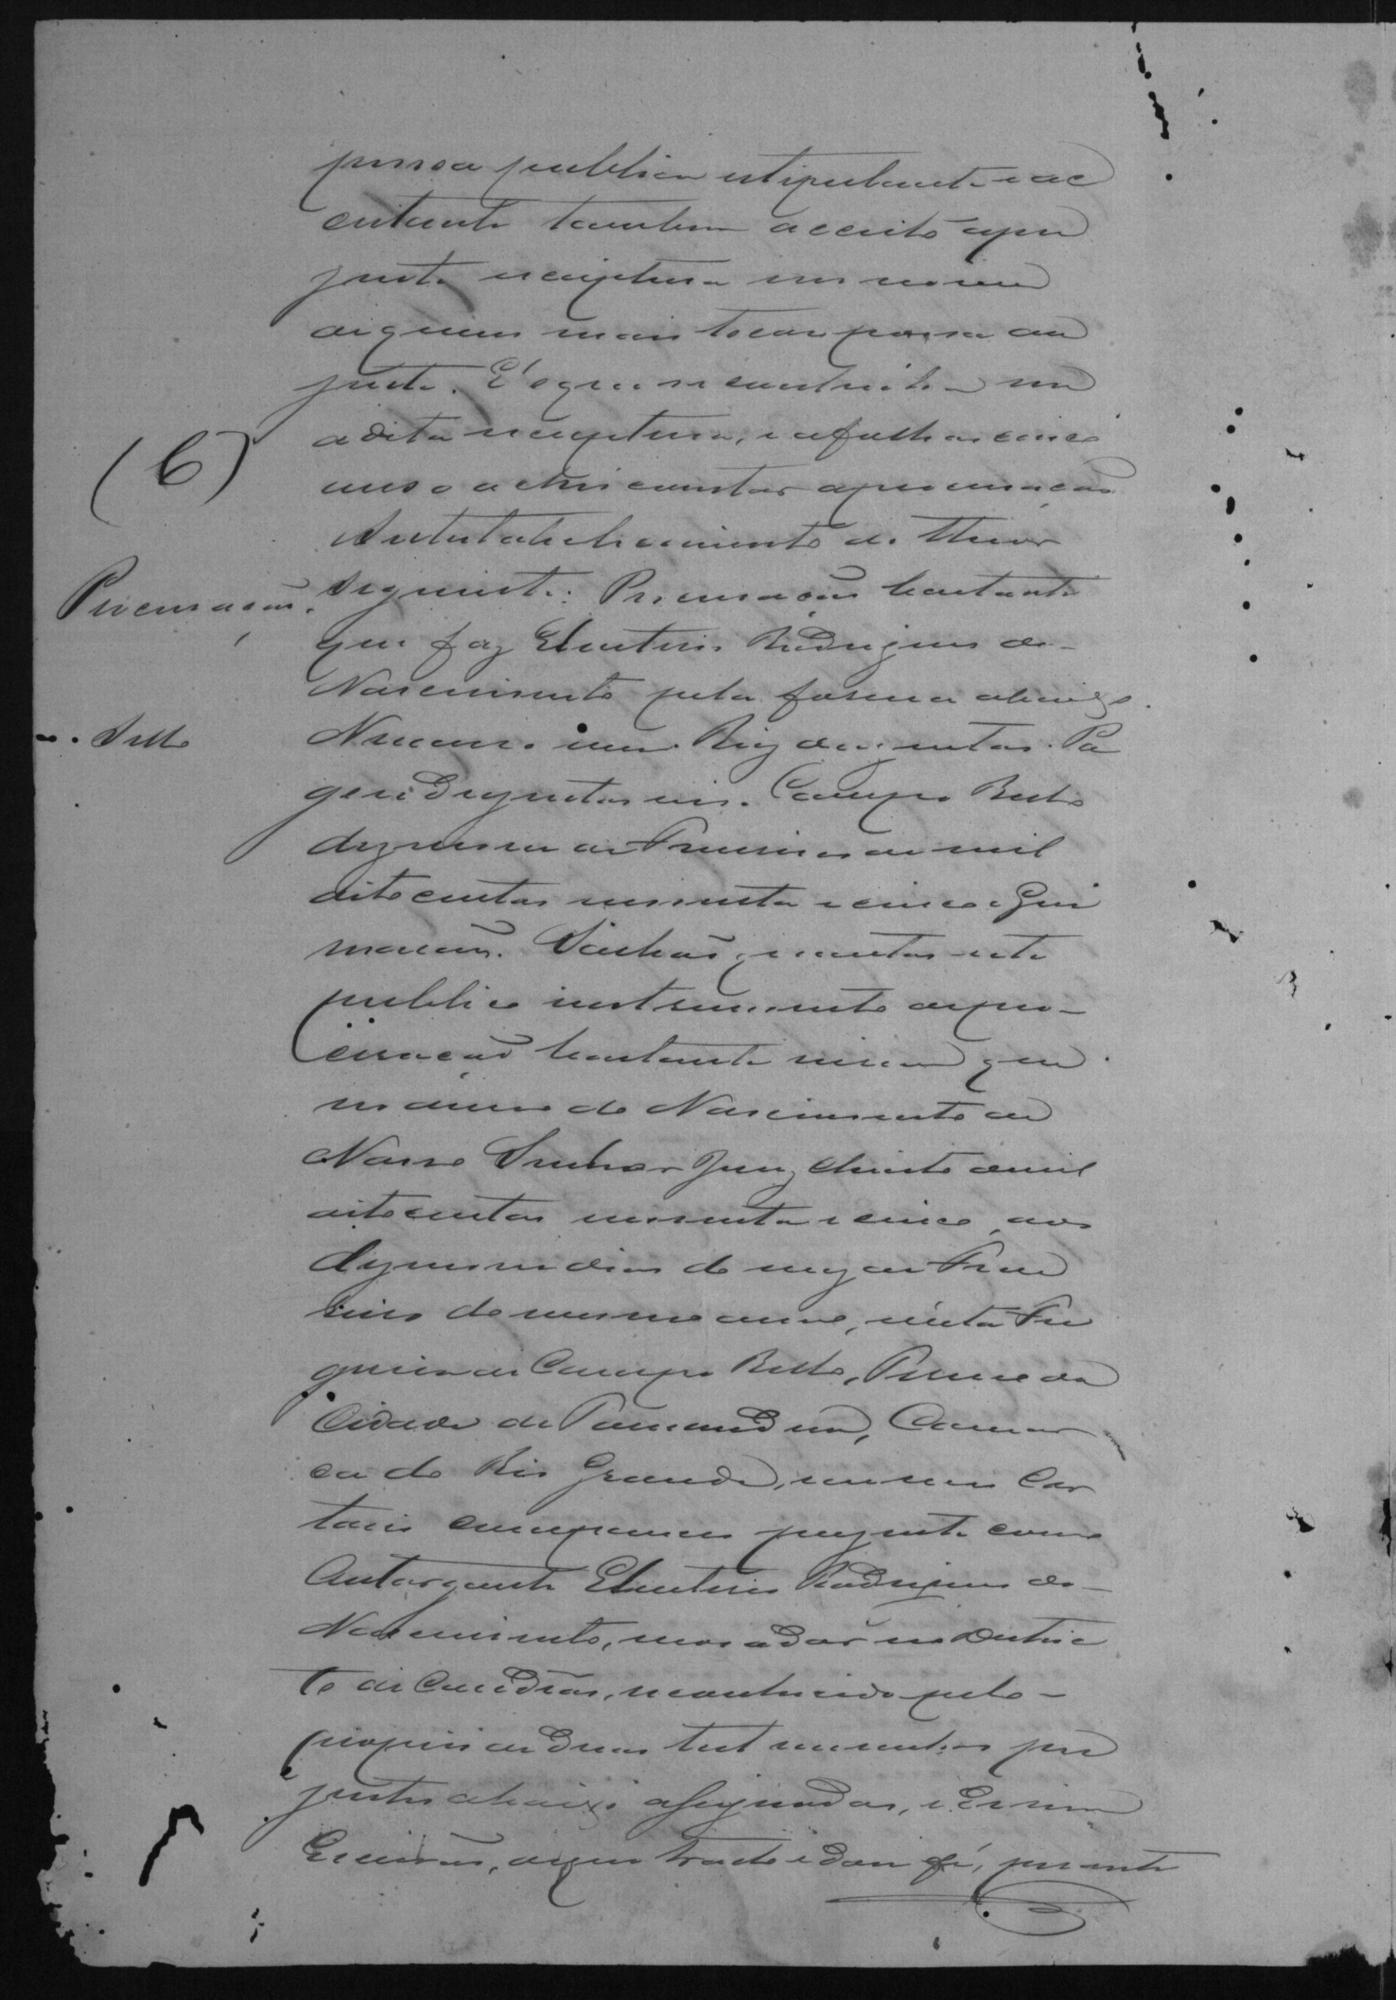 pessoa publica estipulante e ac
ceitante tambem acceito apre
sente escriptura em nome
de quem mais tocar possa au
sente. E' o que se continha em
a dita escriptura, e a folhas cinco
(6)
verso achei constar a procuração
Substabelecimento do theor
Procuração.
seguinte: Procuração bastante
que faz Eleuterio Rodrigues do
Nascimento pela forma abaixo.
Sello
Numero um. Reis duzentos. Pa
gou duzentos reis. Campo Bello
dezenove de Fevereiro de mil
oito centos sessenta e cinco. Gui
marães. Saibão quantos este
publico instrumento de pro-
curação bastante virem que
no anno do Nascimento de
Nosso Senhor Jesuz Christo de mil
oito centos sessenta e cinco, aos
dezenove dias do mez de Feve
reiro do mesmo anno, n'esta Fre
guezia de Campo Bello, Termo da
Cidade de Tamanduá, Comar
ca do Rio Grande, em meu Car
torio compareceu prezente como
Outorgante Eleuterio Rodrigues do
Nascimento, morador no Distric
to de Candêas, reconhecido pelo
proprio de duas testemunhas pre
zentes abaixo assignadas, e de mim
Escrivão, de que trato e dou fé, perante